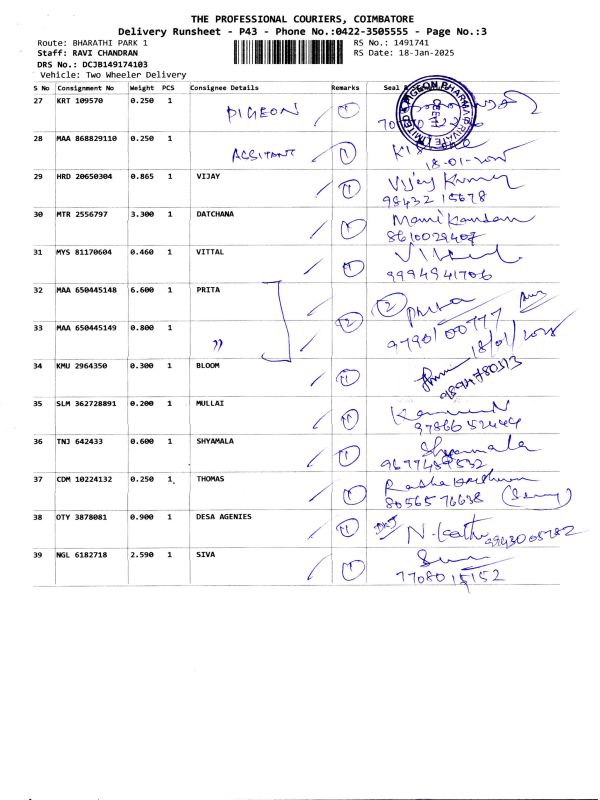 THE PROFESSIONAL COURIERS, COIMBATORE
Delivery Runsheet - P43 - Phone No.:0422-3505555 - Page No.:3
Route: BHARATHI PARK 1 RS No.: 1491741
Staff: RAVI CHANDRAN RS Date: 18-Jan-2025
DRS No.: DCJB149174103
Vehicle: Two Wheeler Delivery
S No Consignment No Weight PCS Consignee Details Remarks Seal
27 KRT 109570 0.250 1 PIGEON 1
28 MAA 868829110 0.250 1 ASSITANT 1
18-01-2025
29 HRD 20650304 0.865 1 VIJAY 1 Vijay Kumar
98432 15678
30 MTR 2556797 3.300 1 DATCHANA 1 Manikandan
8610029407
31 MYS 81170604 0.460 1 VITTAL 1 Vittal
9994941706
32 MAA 650445148 6.600 1 PRITA 2 2 Prita
33 MAA 650445149 0.800 1 " 9790100777
18/01/2025
34 KMU 2964350 0.300 1 BLOOM 1
9894780313
35 SLM 362728891 0.200 1 MULLAI 1
9786652444
36 TNJ 642433 0.600 1 SHYAMALA 1 Shyamala
9677489532
37 CDM 10224132 0.250 1 THOMAS 1
8056576638
38 OTY 3878081 0.900 1 DESA AGENIES 1
9943005782
39 NGL 6182718 2.590 1 SIVA 1
7708015152